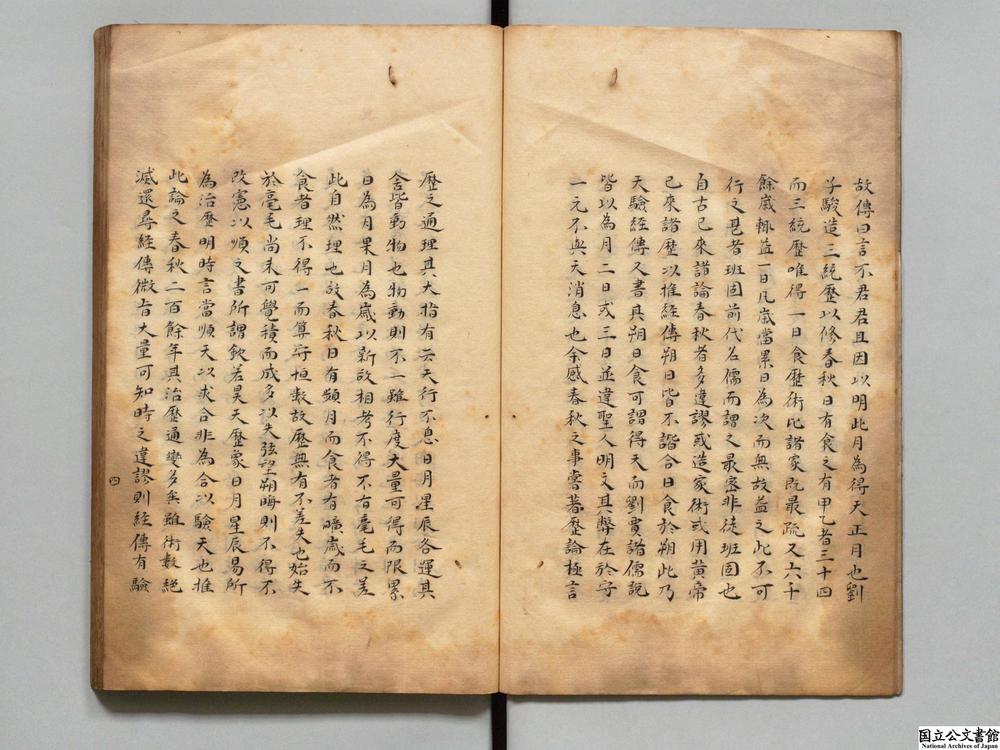 故傳曰言不君君且因以明此月為得天正月也劉
子駿造三統歷以修春秋日有食之有甲乙者三十四
而三統歷唯得一日食歷術比諸家既最疏又六千
餘歲輙益一日凡歲當累日為次而無故益之此不可
行之甚者班固前代名儒而謂之最密非徒班固也
自古已來諸論春秋者多違謬或造家術或用黄帝
已來諸歷以推經傳朔日皆不諧合日食於朔此乃
天驗經傳又書其朔日食可謂得天而劉賈諸儒說
皆以為月二日或三日並違聖人明文其弊在於守
一元不與天消息也余感春秋之事甞著歷論極言
歷之通理其大指有云天行不息日月星辰各運其
舍皆動物也物動則不一雖行度大量可得而限累
日為月累月為歲以新故相考不得不有毫毛之差
此自然理也故春秋日有頻月而食者有曠歲而不
食者理不得一而筭守恒數故歷無有不差失也始失
於毫毛尚未可覺積而成多以失弦望朔晦則不得不
改憲以順之書所謂欽若昊天歷象日月星辰易所
為治歷明時言當順天以求合非為合以驗天也推
此論之春秋二百餘年其治歷通變多矣雖術數絕
滅還尋經傳微旨大量可知時之違謬則經傳有驗
四
国立公文書館
National Archives of Japan